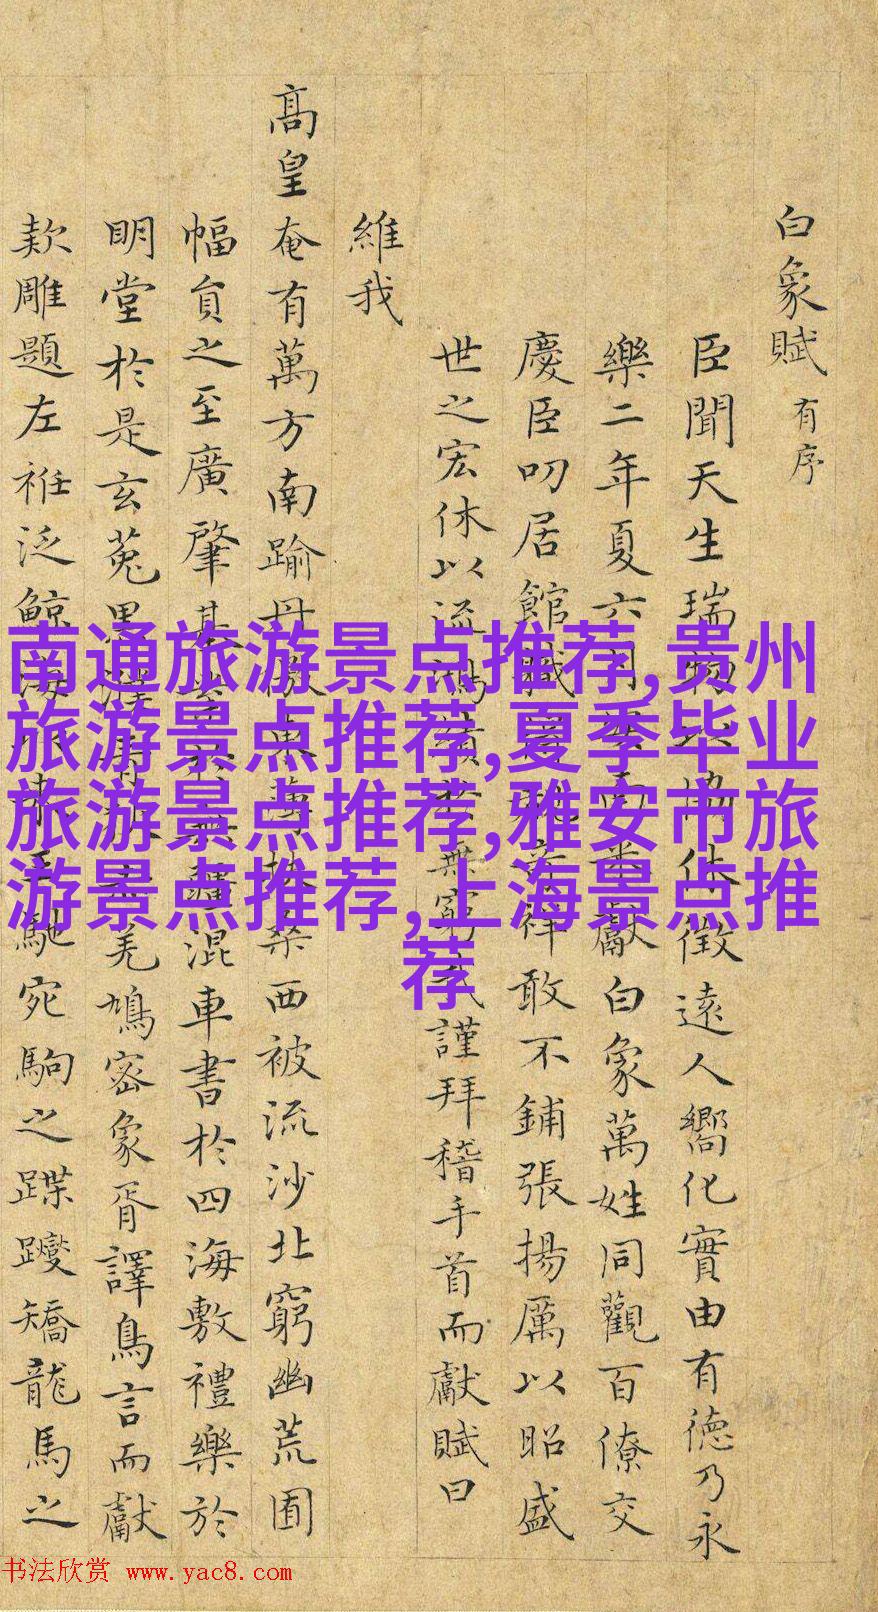 白象賦 有序
臣聞天生瑞物協休徵遠人嚮化實由有德乃永
樂二年夏六月獻白象萬姓同觀百僚交
慶臣叨居館職祥敢不鋪張揚厲以昭盛
世之宏休以流鴻績於無窮謹拜稽手首而獻賦曰
維我
髙皇奄有萬方南踰丹徼東薄扶桑西被流沙北窮幽荒囿
幅負之至廣肇基疆混車書於四海敷禮樂於
明堂於是玄菟羌鳩密象胥譯鳥言而獻
欵雕題左袵泛鯨海馳宛駒之蹀躞矯龍馬之
南通旅游景点推荐,贵州
旅游景点推荐,夏季毕业
旅游景点推荐,雅安市旅
游景点推荐,上海景点推
荐
书法欣赏 www.yac8.com